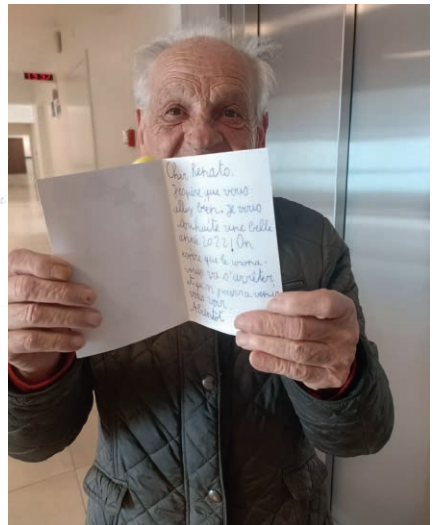 13:37
Cher Renato.
J'espère que vous
allez bien. Je vous
souhaite une belle
année 2022! On
espère que le corona-
virus va s'arrêter
et qu'on pourra venir
vous voir.
Abientôt